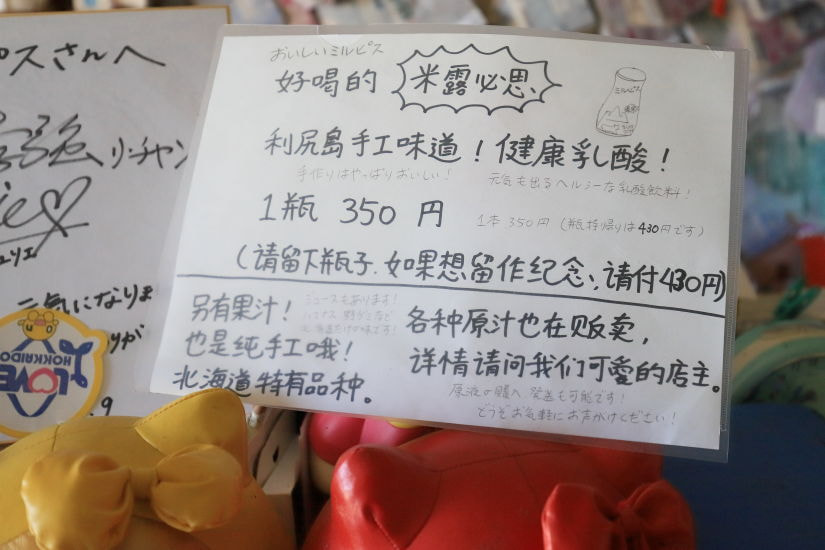 ピスさんへ
リ・チャン
元気になりま
HOKKAIDO
I LOVE
おいしいミルピス
好喝的 米露必思、
ミルピス
利尻島手工味道！健康乳酸！
手作りはやっぱりおいしい！ 元気も出るヘルシーな乳酸飲料！
1瓶 350 円 1本 350円（瓶持帰りは430円です）
（请留下瓶子.如果想留作纪念、请付430円）
另有果汁！ ジュースもあります！
也是纯手工哦！
北海道特有品种。
各种原汁也在贩卖，
详情请问我们可愛的店主。
原液の購入 発送も可能です！
どうぞお気軽にお声がけください！